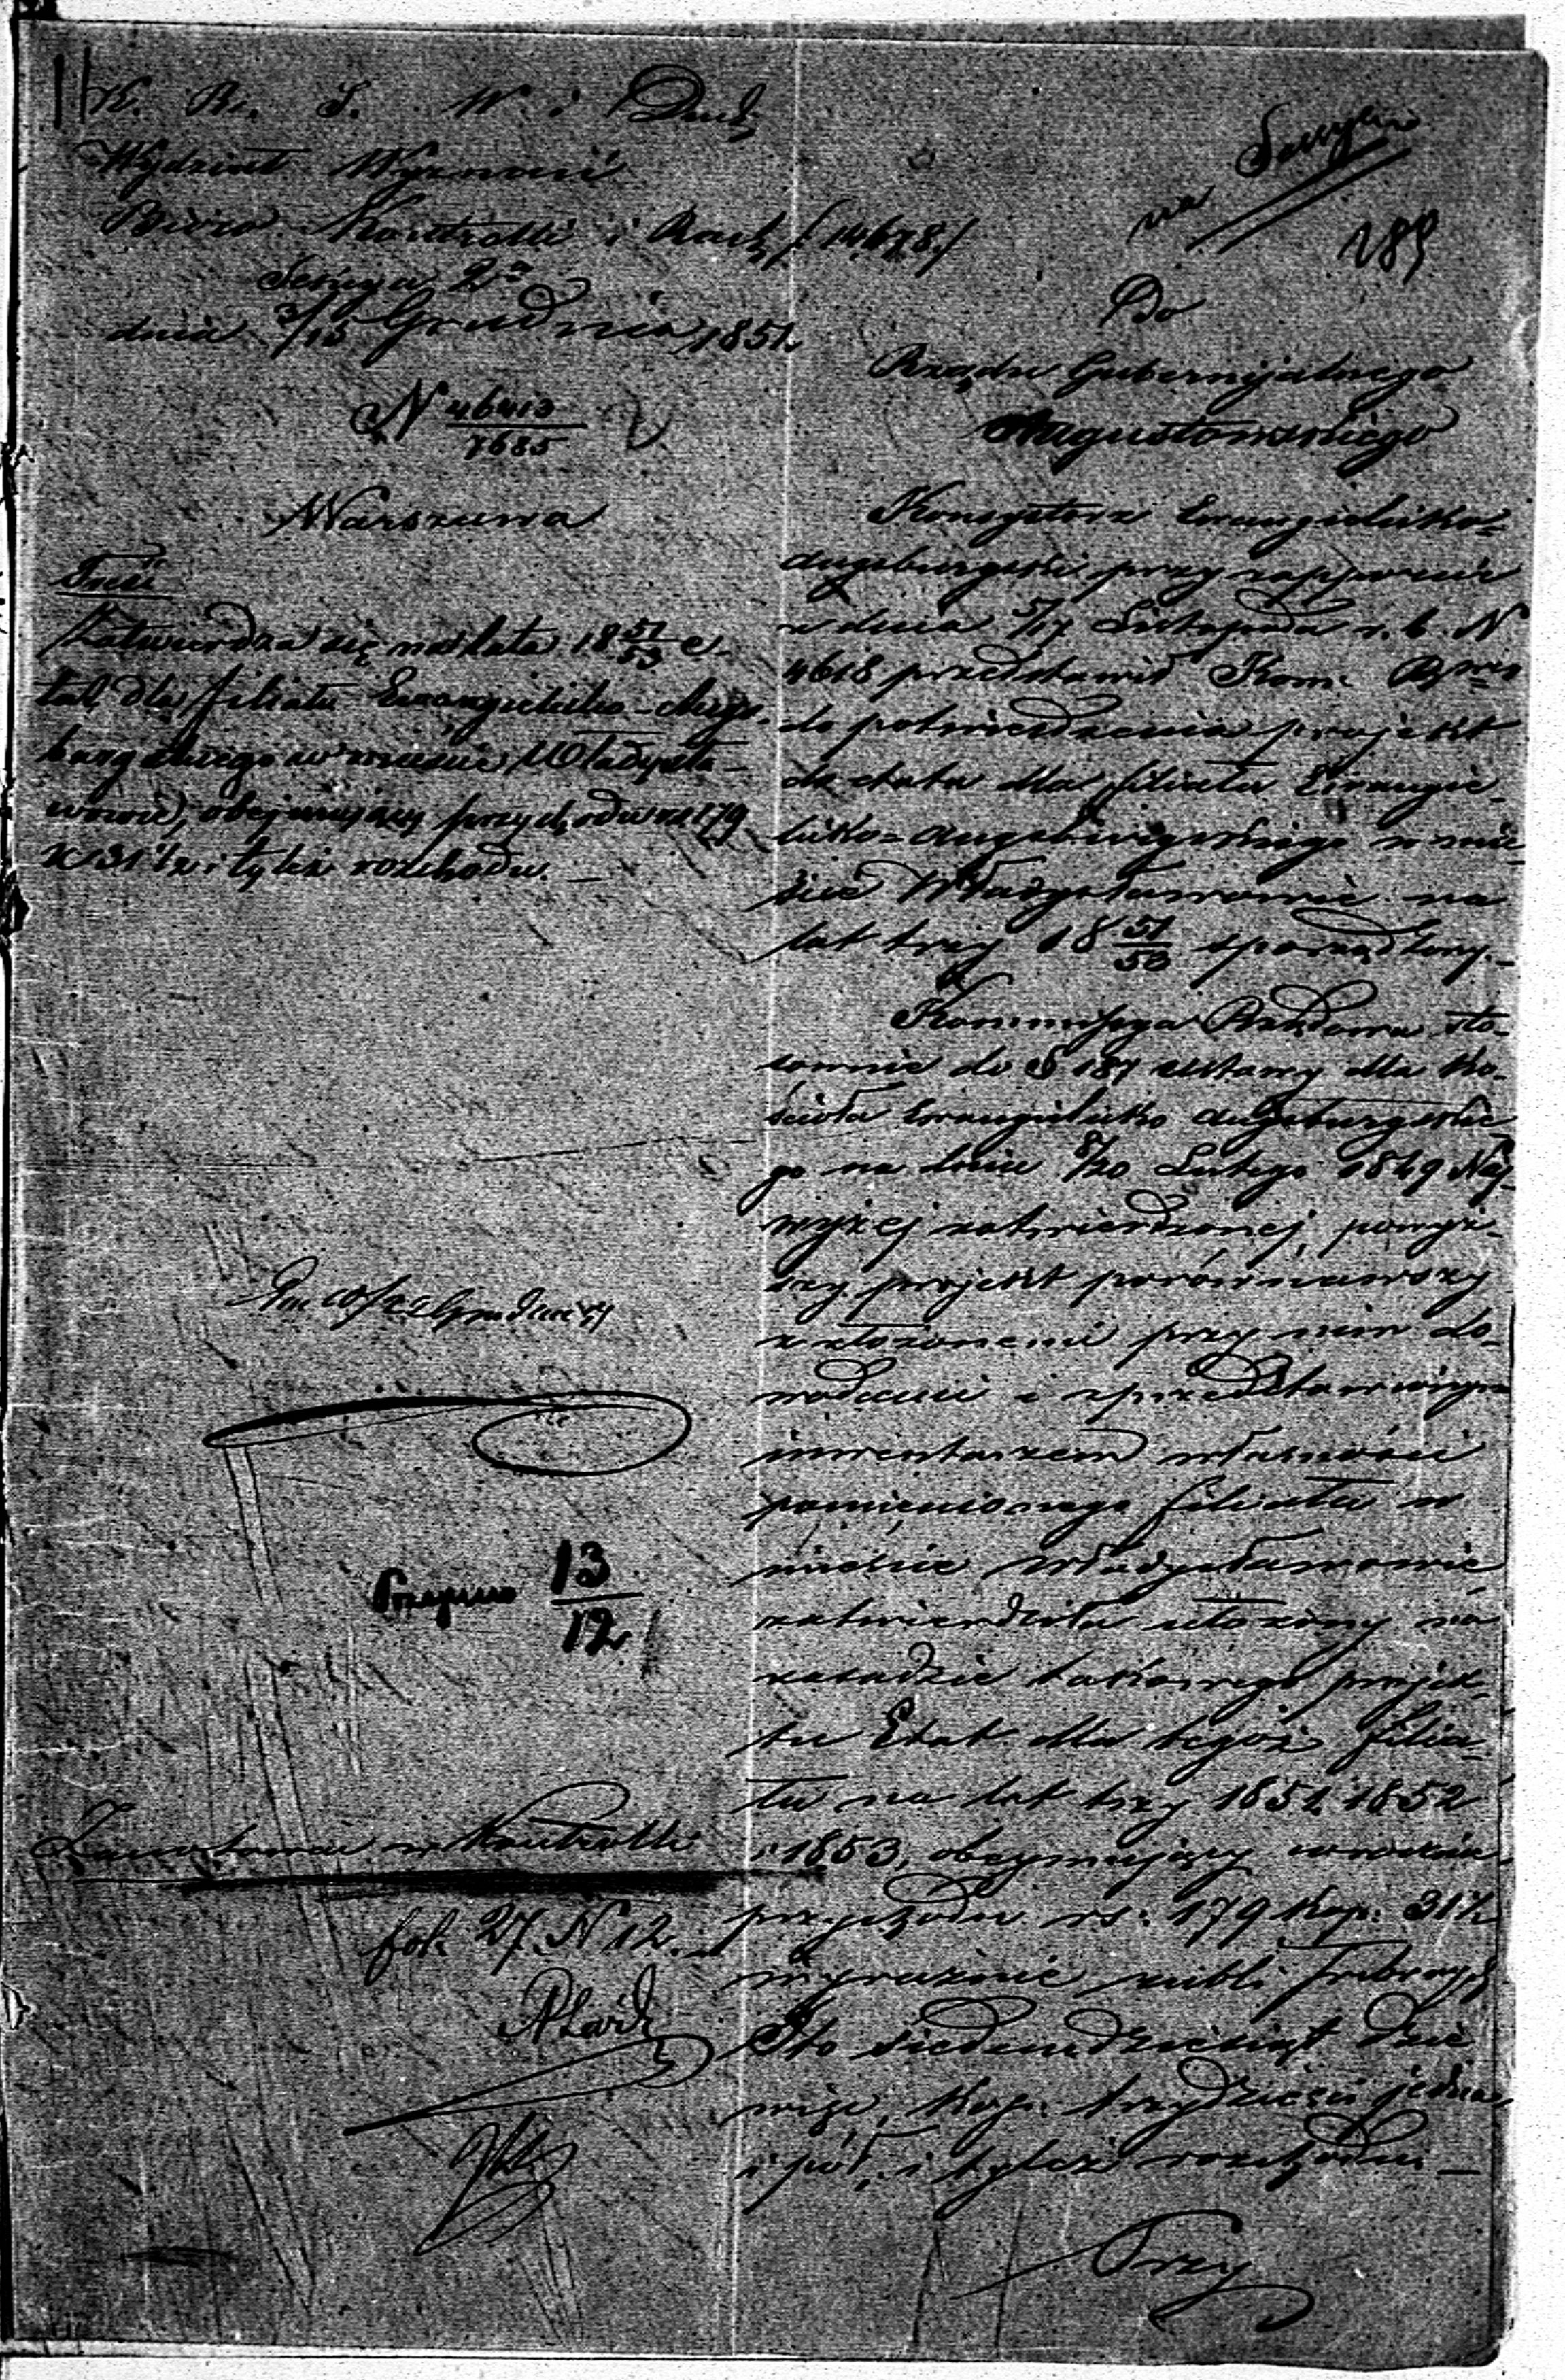 K. R. S. W. i Duch
Wydział Wyznań
Biuro Kontrolli i Rach. /14678/
Sessya 2a
dnia 3/15 Grudnia 1851
N 46410/7685
Warszawa
Treść
Zatwierdza się na lata 18 51/53 e-
tat dla filiału Ewangielicko-Augs-
burgskiego w mieście Władysła-
wowie, obejmujący przychodu rs 179
k 31 1/2 i tyleż rozchodu. —
13/12
Zanotowano w Kontrolli
fol. 27. N 12.
na
289
Do
Rządu Gubernijalnego
Augustowskiego
Konsystorz Ewangielicko-
Augsburgski przy rapporcie
z dnia 5/17 Listopada r. b. N
4618 przedstawił Kom. Rząd.
do potwierdzenia projekt
do etatu dla filiału Ewangie-
licko-Augsburgskiego w mie-
ście Władysławowie na
lat trzy 18 51/53 sporządzony. —
Kommissya Rządowa sto-
sownie do § 187 ustawy dla Ko-
ścioła Ewangielicko Augsburgskie-
go na dniu 8/20 Lutego 1849 Naj-
wyżej zatwierdzonej, powyż-
szy projekt porównawszy
z złożonemi przy nim do-
wodami i z przedstawionym
inwentarzem własności
pomienionego filiału w
mieście Władysławowie,
zatwierdziła ułożony na
zasadzie takowego projek-
tu Etat dla tegoż filia-
łu na lat trzy 1851, 1852
i 1853, obejmujący w rocznim
przychodu rs: 179 kop: 31 1/2
wyraźnie rubli srebrnych
Sto siedemdziesiąt dzie-
więć, kop. trzydzieści jedna
i pół, i tyleż rozchodu. —
Trzy